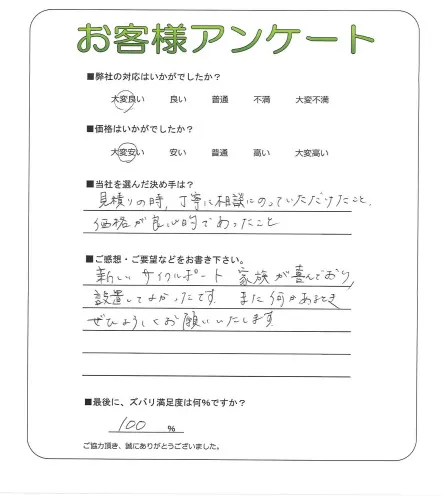 お客様アンケート
■弊社の対応はいかがでしたか？
大変良い 良い 普通 不満 大変不満
■価格はいかがでしたか？
大変安い 安い 普通 高い 大変高い
■当社を選んだ決め手は？
見積りの時，丁寧に相談にのっていただけたこと．
価格が良心的であったこと
■ご感想・ご要望などをお書き下さい。
新しいサイクルポート 家族が喜んでおり，
設置してよかったです． また何かあるとき
ぜひよろしくお願いいたします．
■最後に、ズバリ満足度は何％ですか？
100 ％
ご協力頂き、誠にありがとうございました。